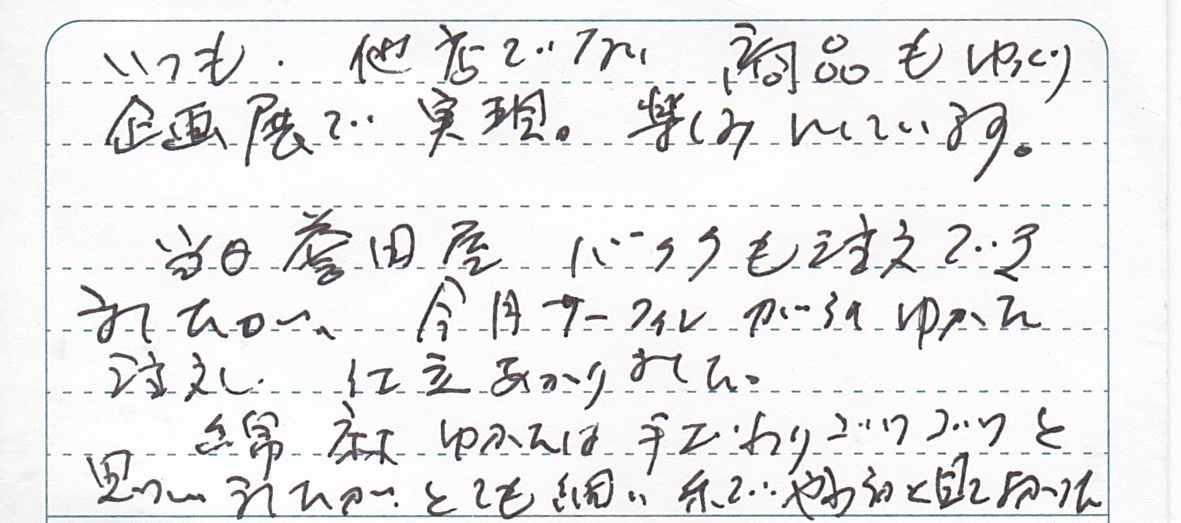 いつも、他店でない 商品もゆっくり
企画展で 実現。楽しみにしています。
当日 誉田屋 バックも注文でき
ましたが、今月 サーフィル がら ゆかた
注文し、仕立あがりました。
綿麻 ゆかたは 手ざわりゴツゴツと
思い ましたが、とても細い糸で、やわ